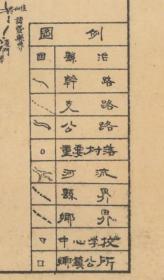 圖例
縣治
幹路
支路
公路
重要村落
河流
縣界
鄉界
中心學校
鄉鎮公所